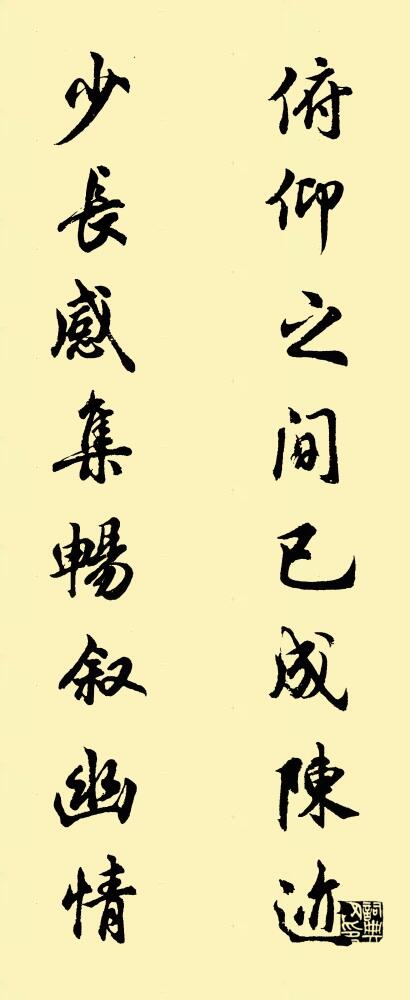 俯仰之間已成陳迹
少長感集暢叙幽情
詞典